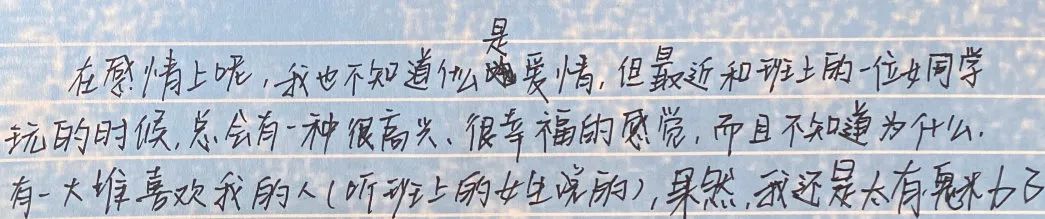 在感情上呢,我也不知道什么是爱情,但最近和班上的一位女同学
玩的时候,总会有一种很高兴、很幸福的感觉,而且不知道为什么.
有一大堆喜欢我的人(听班上的女生说的),果然,我还是太有魅力了